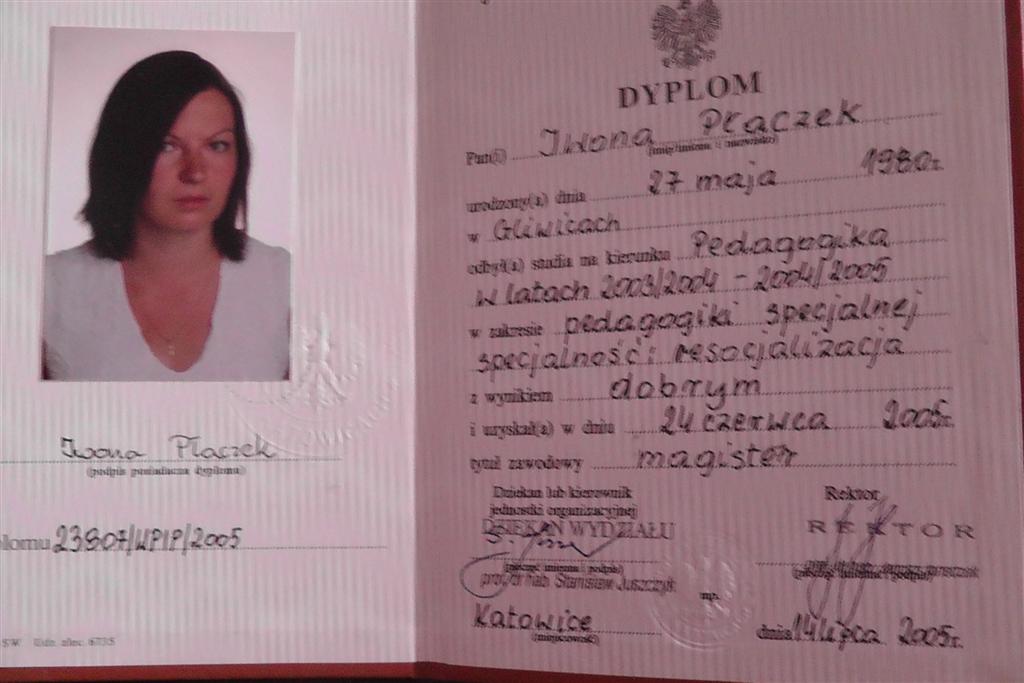 Iwona Płaczek
(podpis posiadacza dyplomu)
lomu 23807/WPiP/2005
DYPLOM
Pan(i) Iwona Płaczek
(imię/imiona i nazwisko)
urodzony(a) dnia 27 maja 1980r.
w Gliwicach
odbył(a) studia na kierunku Pedagogika
w latach 2003/2004 - 2004/2005
w zakresie pedagogiki specjalnej
specjalność: resocjalizacja
z wynikiem dobrym
i uzyskał(a) w dniu 24 czerwca 2005r.
tytuł zawodowy magister
Dziekan lub kierownik
jednostki organizacyjnej
DZIEKAN WYDZIAŁU
(pieczęć imienna i podpis)
prof. dr hab. Stanisław Juszczyk
Rektor
REKTOR
(pieczęć imienna i podpis)
mp.
Katowice
(miejscowość)
dnia 14 lipca 2005r.